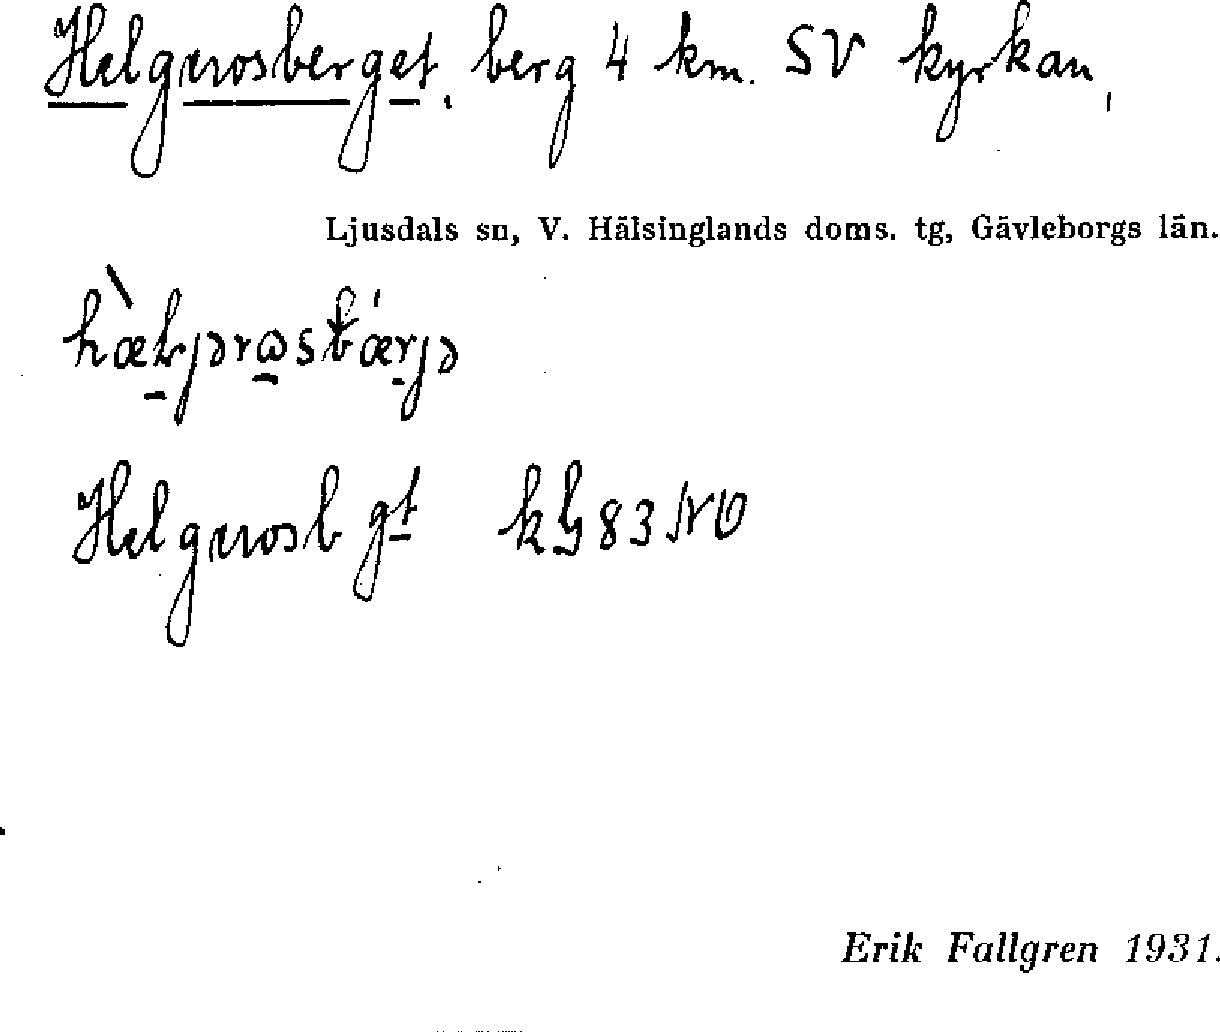 Helgerosberget, berg 4 km. SV kyrkan,
Ljusdals sn, V. Hälsinglands doms. tg, Gävleborgs län.
Helgerosb gt kb 83 NO
Erik Fallgren 1931.